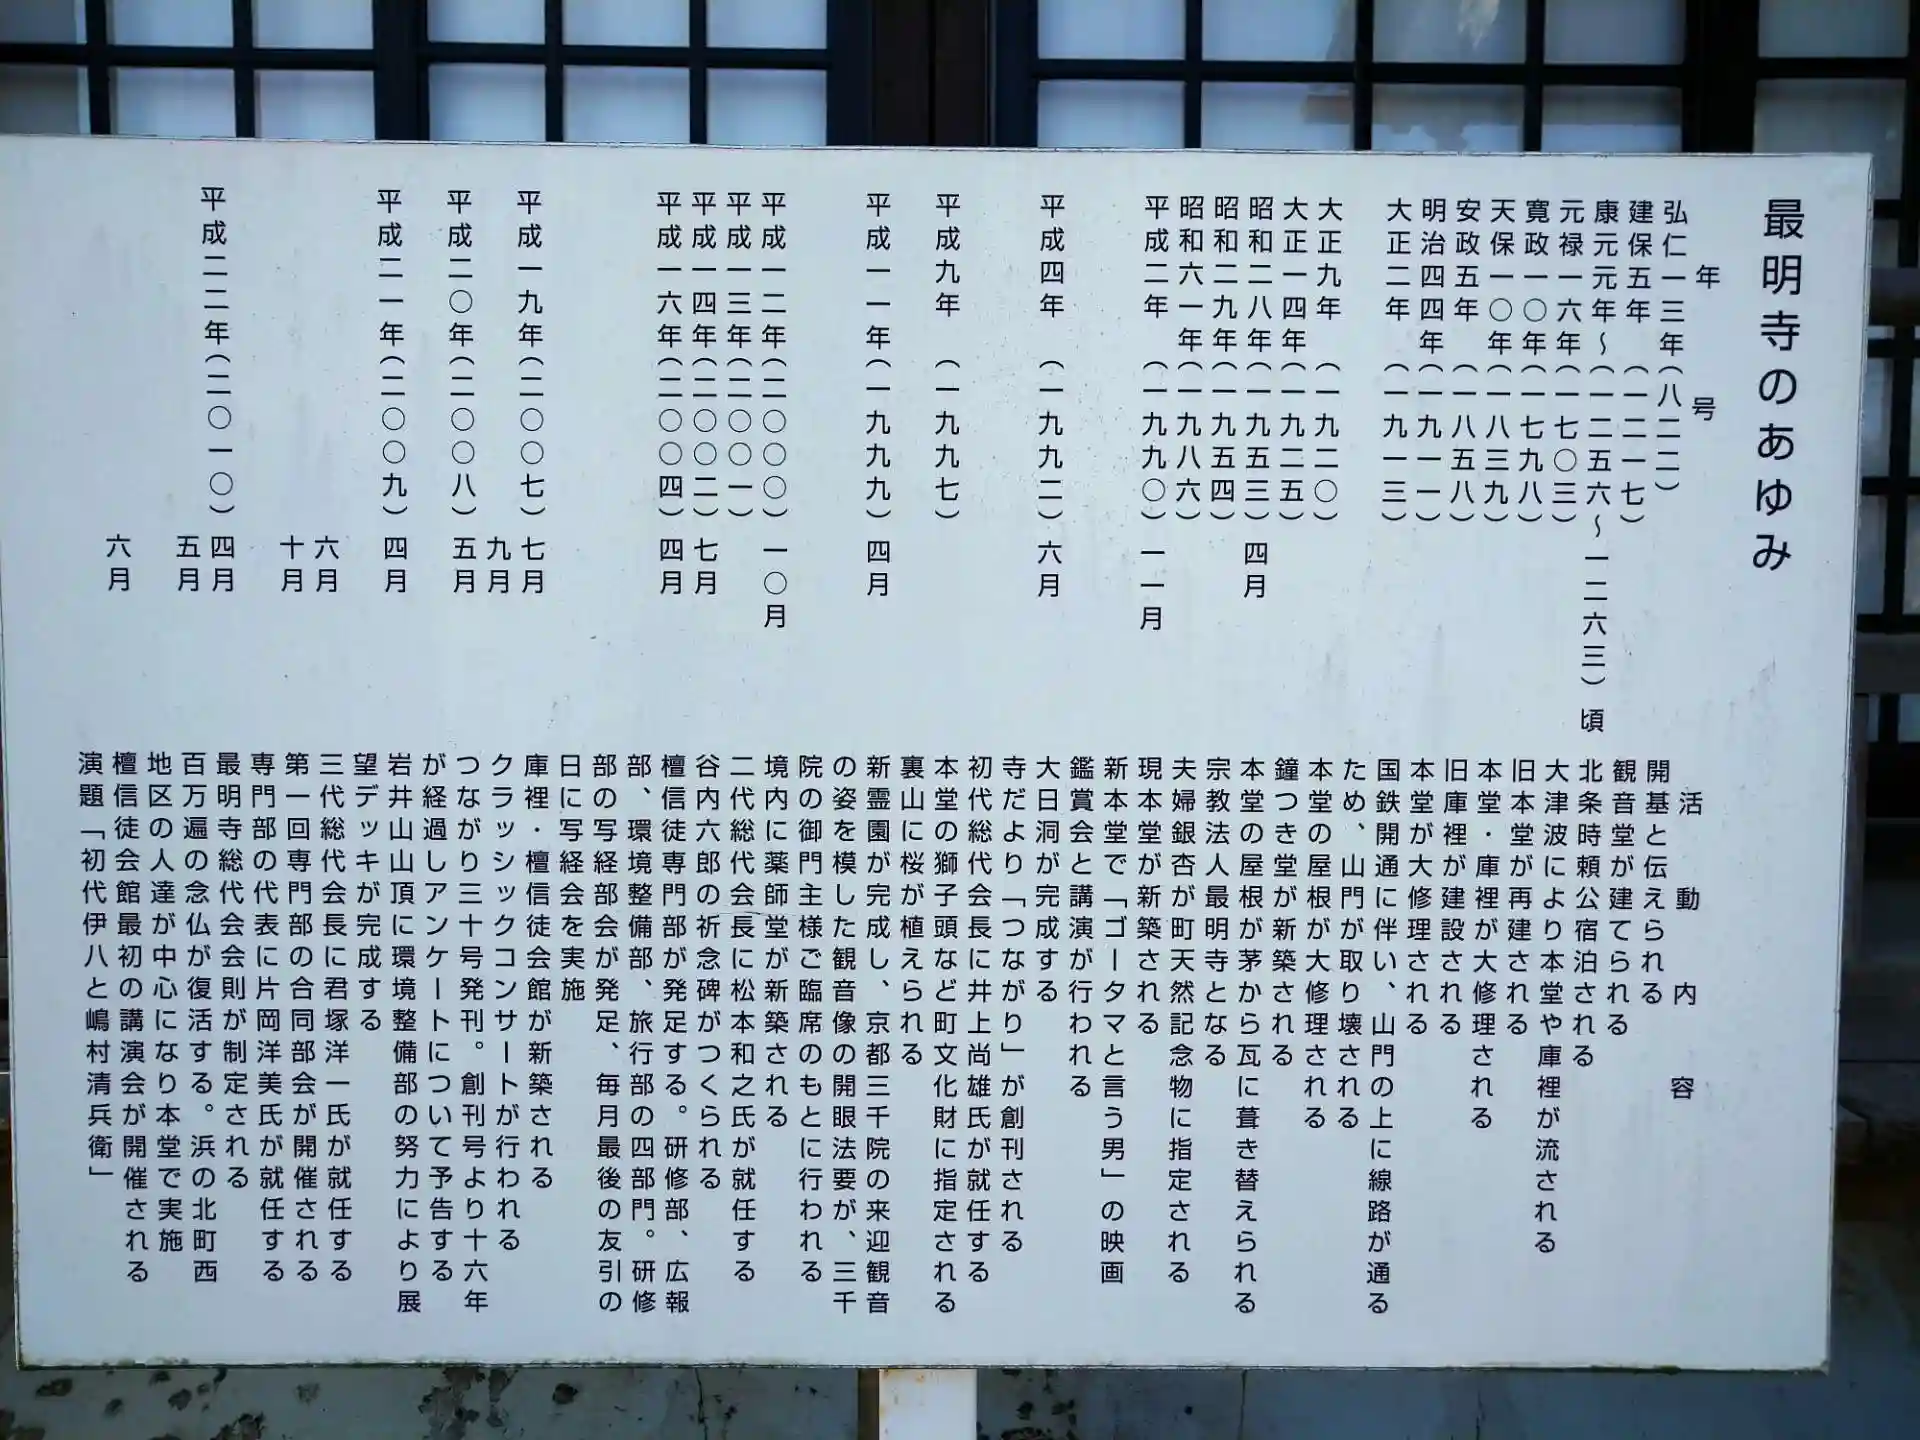 最明寺のあゆみ
年号　活動内容
弘仁一三年（八二二）　開基と伝えられる
建保五年（一二一七）　観音堂が建てられる
康元元年～（一二五六～一二六三）頃　北条時頼公宿泊される
元禄一六年（一七〇三）　大津波により本堂や庫裡が流される
寛政一〇年（一七九八）　旧本堂が再建される
天保一〇年（一八三九）　本堂・庫裡が大修理される
安政五年（一八五八）　旧庫裡が建設される
明治四四年（一九一一）　本堂が大修理される
大正二年（一九一三）　国鉄開通に伴い、山門の上に線路が通る
ため、山門が取り壊される
大正九年（一九二〇）　本堂の屋根が大修理される
大正一四年（一九二五）　鐘つき堂が新築される
昭和二八年（一九五三）四月　本堂の屋根が茅から瓦に葺き替えられる
昭和二九年（一九五四）　宗教法人最明寺となる
昭和六一年（一九八六）　夫婦銀杏が町天然記念物に指定される
平成二年（一九九〇）一一月　現本堂が新築される
新本堂で「ゴータマと言う男」の映画
鑑賞会と講演が行われる
平成四年（一九九二）六月　大日洞が完成する
寺だより「つながり」が創刊される
初代総代会長に井上尚雄氏が就任する
平成九年（一九九七）　本堂の獅子頭など町文化財に指定される
裏山に桜が植えられる
平成一一年（一九九九）四月　新霊園が完成し、京都三千院の来迎観音
の姿を模した観音像の開眼法要が、三千
院の御門主様ご臨席のもとに行われる
平成一二年（二〇〇〇）一〇月　境内に薬師堂が新築される
平成一三年（二〇〇一）　二代総代会長に松本和之氏が就任する
平成一四年（二〇〇二）七月　谷内六郎の祈念碑がつくられる
平成一六年（二〇〇四）四月　檀信徒専門部が発足する。研修部、広報
部、環境整備部、旅行部の四部門。研修
部の写経部会が発足、毎月最後の友引の
日に写経会を実施
平成一九年（二〇〇七）七月　庫裡・檀信徒会館が新築される
九月　クラッシックコンサートが行われる
平成二〇年（二〇〇八）五月　つながり三十号発刊。創刊号より十六年
が経過しアンケートについて予告する
平成二一年（二〇〇九）四月　岩井山山頂に環境整備部の努力により展
望デッキが完成する
六月　三代総代会長に君塚洋一氏が就任する
十月　第一回専門部の合同部会が開催される
専門部の代表に片岡洋美氏が就任する
平成二二年（二〇一〇）四月　最明寺総代会会則が制定される
五月　百万遍の念仏が復活する。浜の北町西
地区の人達が中心になり本堂で実施
六月　檀信徒会館最初の講演会が開催される
演題「初代伊八と嶋村清兵衛」